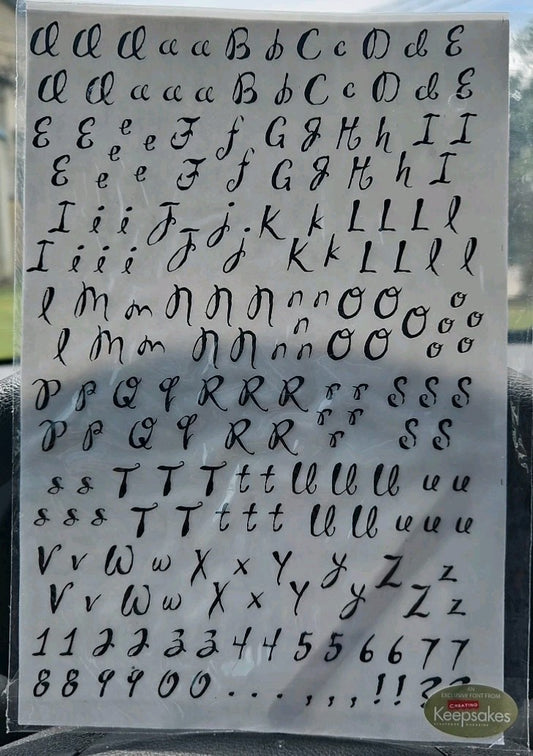 A A A a a B b C c D d E
A A a a a B b C c D d E
E E e e e F f G g H h I I
E e e F f G g H h I
I i i J j . K k L L L l
I i i i J j K k L L l l
l M m N N N n n O O O o o o
l M m N N n n n O O o o
P p Q q R R R r r S S S
P p Q q R R r r r S S
s s T T T t t U U U u u
s s s T T t t t U U u u u
V v W w X x Y y Z z
V v W w X x Y y Z z
1 1 2 2 3 3 4 4 5 5 6 6 7 7
8 8 9 9 0 0 . . . . , , , ! !
AN
EXCLUSIVE FONT FROM
CREATING
Keepsakes